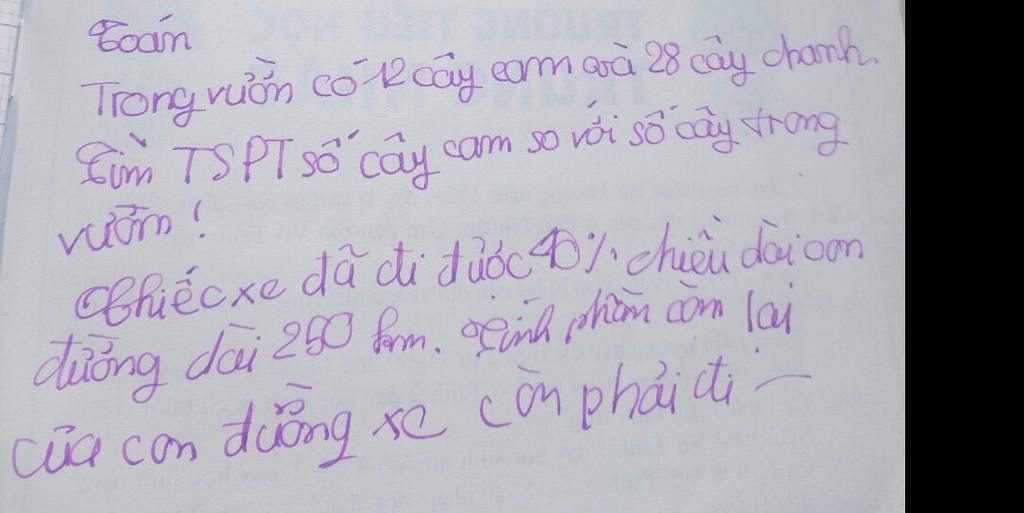 Toán
Trong vườn có 12 cây cam và 28 cây chanh.
Tìm TSPT số cây cam so với số cây trong
vườn!
Chiếc xe đã đi được 40% chiều dài con
đường dài 250 km. Tính phần còn lại
của con đường xe còn phải đi